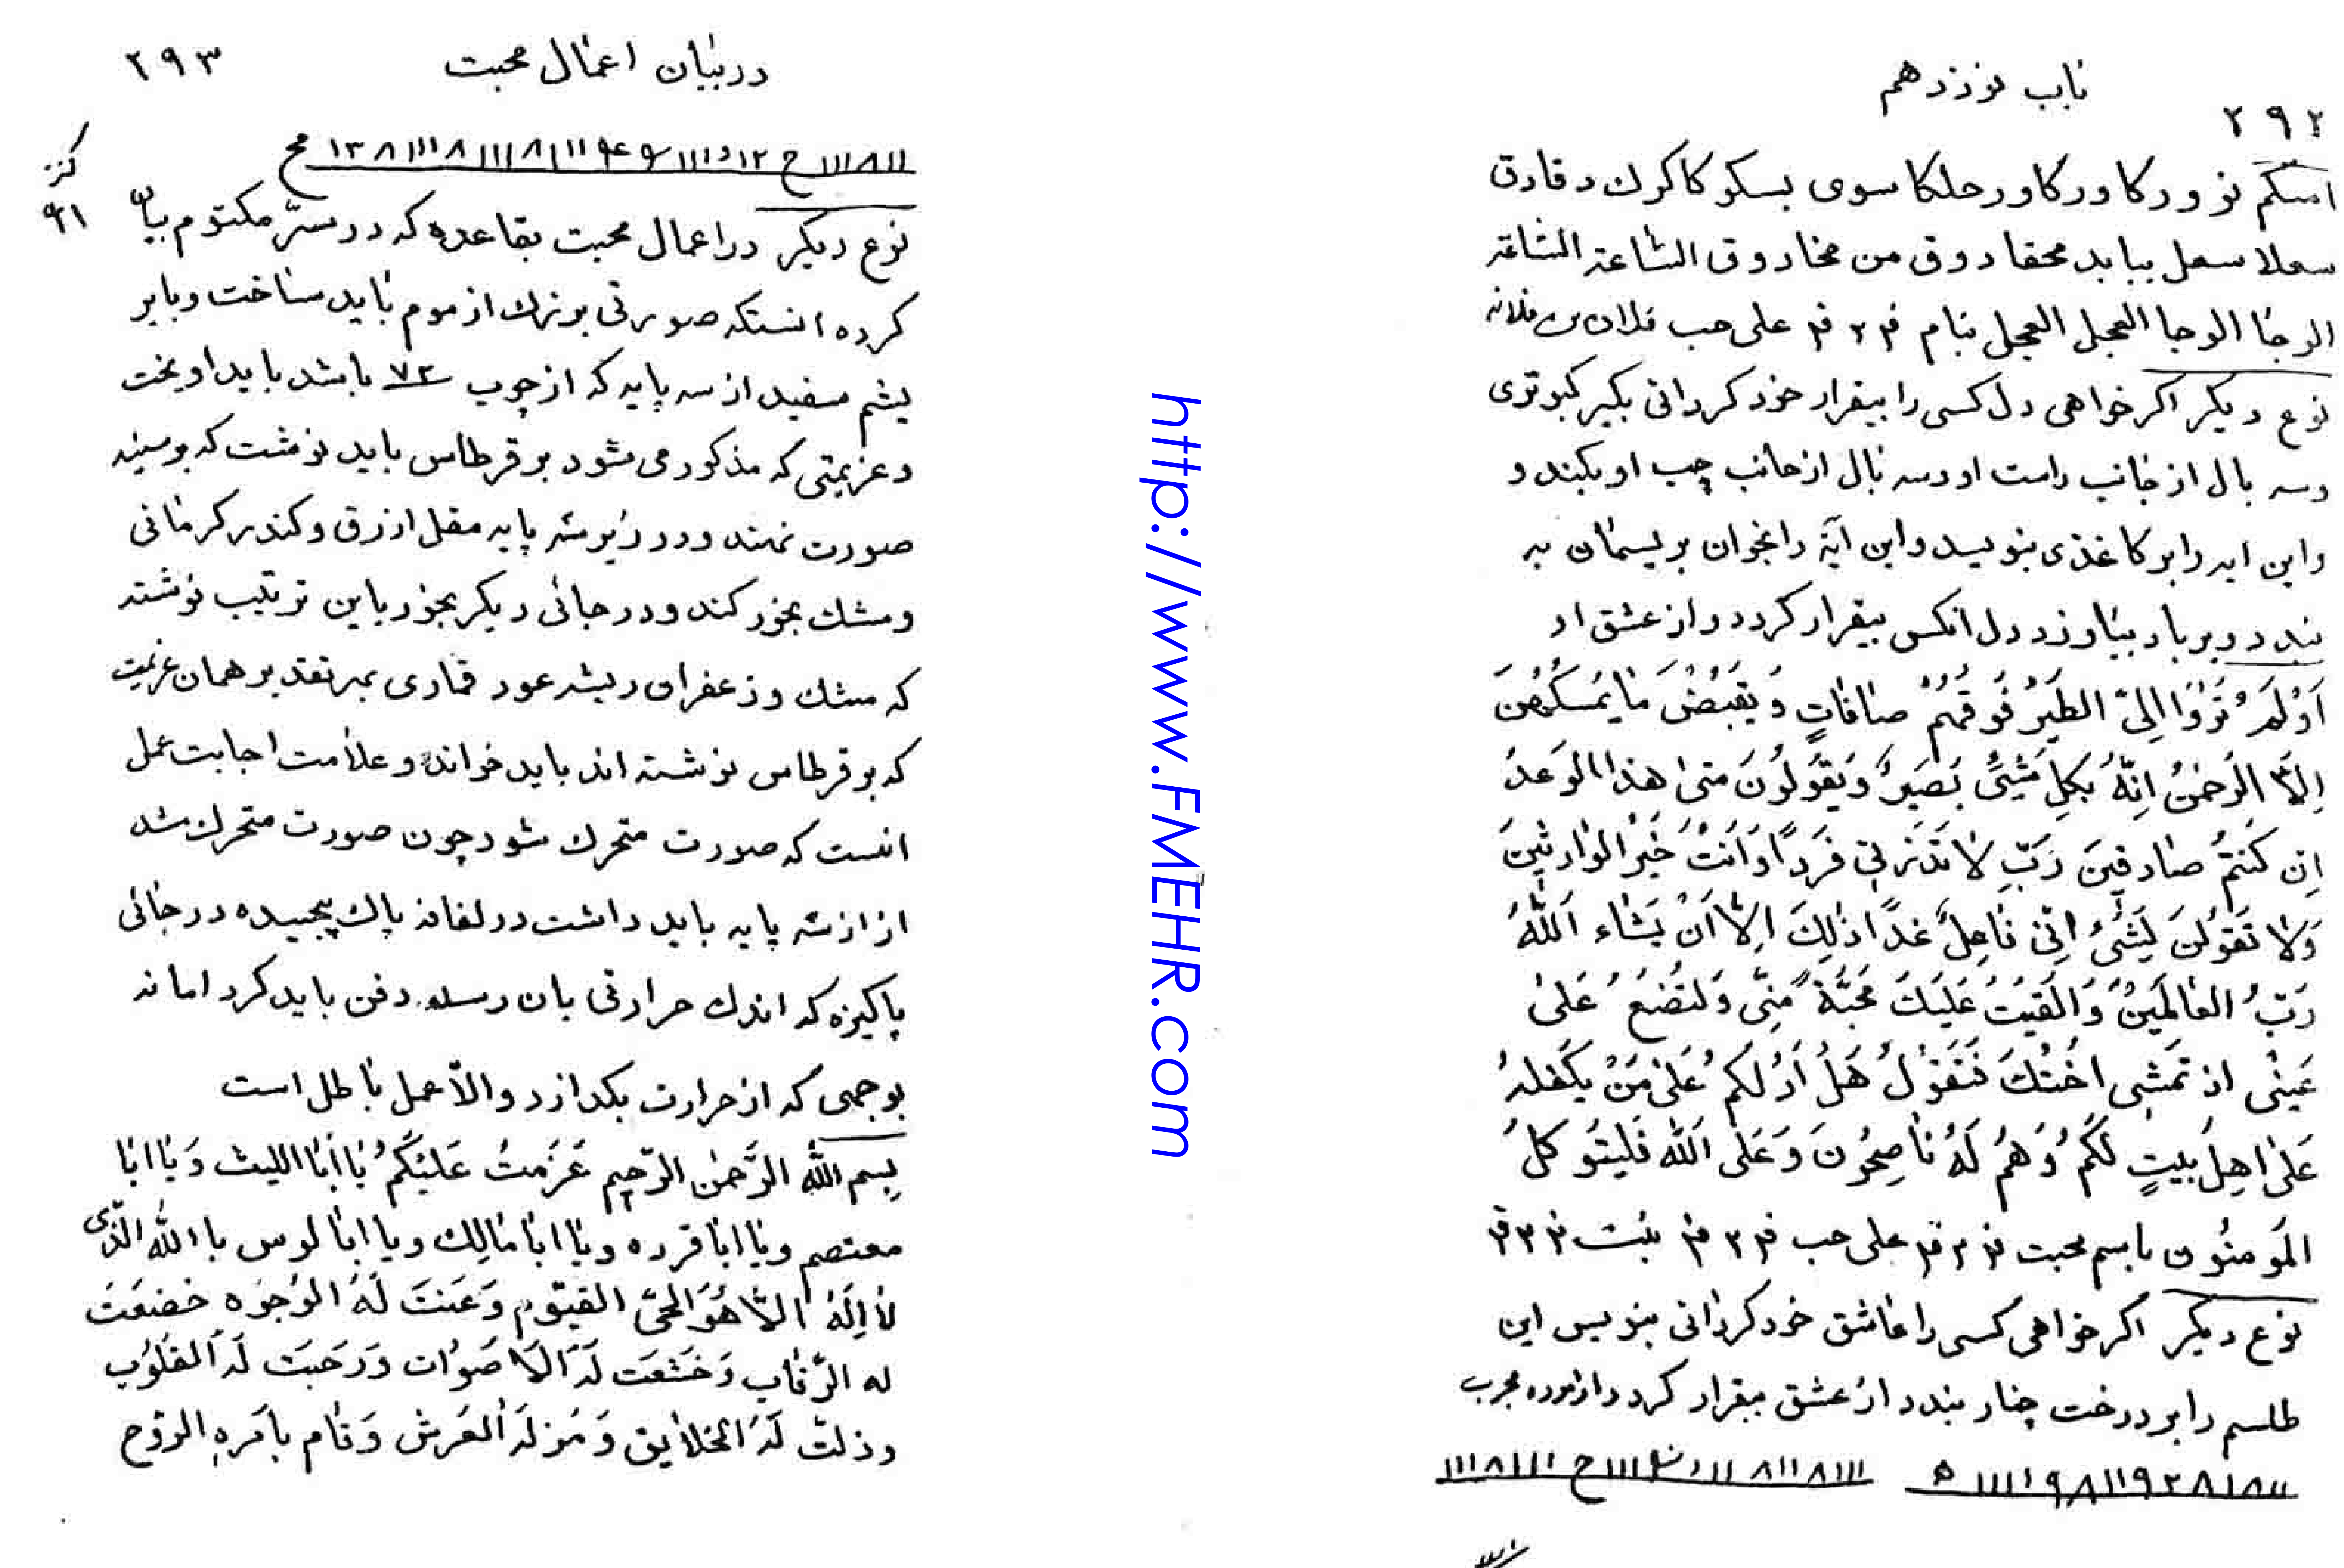 باب نوزدهم
۲۹۲
سعلا سعل بیابد محقا دوق من مخاروق الساعة الساعة
الوحا الوحا العجل العجل بنام علی حب فلان بن فلانه
نوع دیگر اگر خواهی دل کسی را بیقرار خود گردانی بگیر کبوتری
وسه بال از جانب راست او وسه بال از جانب چپ او بکند و
واین ایه را بر کاغذی بنویسد واین آیة را بخوان بریسمان به
بندد وبر باد بیاویزد دل انکس بیقرار گردد واز عشق او
اَوَلَمْ تَرَوْا اِلیَ الطَیْرُ فَوقَهُمْ صافاتٍ وَیَقْبِضْنَ مایُمْسِکُهُنَ
اِلاَّ الرَحْمنُ اِنَّهُ بِکُلِ شَیْیءٍ بَصَیرٌ وَیَقُولُونَ مَتیٰ هذا الوَعدُ
اِن کُنتُمْ صادِقینَ رَبِّ لاتَذَرْنی فَرداً وَاَنْتَ خَیْرُ الوارِثینَ
وَلا تَقوُلَنَ لِشَیْءٍ اِنّی فاعِلٌ غَداً ذٰلِکَ اِلاّ اَنْ یَشاء اَللّٰهُ
رَبّ العالَمینَ وَاَلقَیْتُ عَلَیکَ مَحَبَّةً مِنّی وَلتُصْنَعُ عَلیٰ
عَینی اِذ تَمشی اُختُکَ فَتَقوُلُ هَلْ اَدُلُکُمْ عَلیٰ مَنْ یَکفلهُ
عَلیٰ اهِلِ بَیتٍ لَکُمْ وَهُمْ لَهُ ناصِحُونَ وَعَلَی اَللّٰه فَلیَتَوکلُ
المَومنُون باسم محبت علی حب بنت
نوع دیگر اگر خواهی کسی را عاشق خود گردانی بنویس این
طلسم را بر درخت چنار بندد از عشق بیقرار گردد وازموده مجرب
در بیان اعمال محبت
۲۹۳
کنز
۹۱
نوع دیگر در اعمال محبت بقاعده که در سرّ مکتوم بیان
کرده انستکه صورتی بزرک از موم باید ساخت و بابر
یشم سفید از سه پایه که از چوب ۷۲ باشد باید اویخت
وعزیمتی که مذکور می شود بر قرطاس باید نوشت که بر سینه
صورت نهند ودر زیر سه پایه مقل ازرق وکندر کرمانی
ومشک بخور کند ودر جائی دیگر بخور باین ترتیب نوشته
که مشک وزعفران ریشه عود قماری بهر تقدیر همان عزیمت
که بر قرطاس نوشته اند باید خواند وعلامت اجابت عمل
انست که صورت متحرک شود چون صورت متحرک شد
از ان سه پایه باید داشت در لفافه پاک پیچیده در جائی
پاکیزه که اندک حرارتی بان رسد دفن باید کرد اما نه
بوجهی که از حرارت بگدازد والاّ عمل باطل است
بِسم اللّٰه الرَّحمٰن الرّحیم عَزَمتُ عَلَیکُمْ یا اَبا اللیث وَیا ابا
معتصم ویا ابا قرده ویا ابا مالِک ویا ابا لوس باللّٰه الّذی
لااِلَهُ الاّ هُوَ الحَیّ القیّوم وَعَنَتَ لَهُ الوُجوُه خَضَعَتَ
له الرِّقاب وَخَشَعَت لَهَ الاَصوات وَرَحَبَت لَهَ القلوُب
وذلتّ لَهَ الخلایق وَ لَهَ العَرش وَقام بِاَمرِهِ الروُح
http://www.FMEHR.com